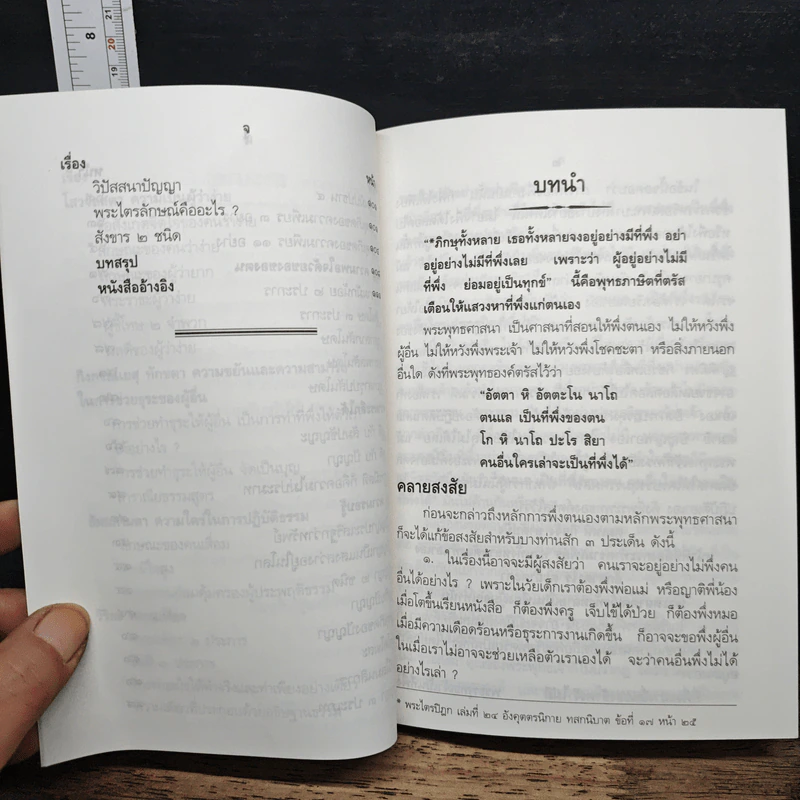 จ
เรื่อง
วิปัสสนาปัญญา
พระไตรลักษณ์คืออะไร ?
สังขาร ๒ ชนิด
บทสรุป
หนังสืออ้างอิง
บทนำ
"*ภิกษุทั้งหลาย เธอทั้งหลายจงอยู่อย่างมีที่พึ่ง อย่า
อยู่อย่างไม่มีที่พึ่งเลย เพราะว่า ผู้อยู่อย่างไม่มี
ที่พึ่ง ย่อมอยู่เป็นทุกข์" นี้คือพุทธภาษิตที่ตรัส
เตือนให้แสวงหาที่พึ่งแก่ตนเอง
พระพุทธศาสนา เป็นศาสนาที่สอนให้พึ่งตนเอง ไม่ให้หวังพึ่ง
ผู้อื่น ไม่ให้หวังพึ่งพระเจ้า ไม่ให้หวังพึ่งโชคชะตา หรือสิ่งภายนอก
อื่นใด ดังที่พระพุทธองค์ตรัสไว้ว่า
"อัตตา หิ อัตตะโน นาโถ
ตนแล เป็นที่พึ่งของตน
โก หิ นาโถ ปะโร สิยา
คนอื่นใครเล่าจะเป็นที่พึ่งได้"
คลายสงสัย
ก่อนจะกล่าวถึงหลักการพึ่งตนเองตามหลักพระพุทธศาสนา
ก็จะได้แก้ข้อสงสัยสำหรับบางท่านสัก ๓ ประเด็น ดังนี้
๑. ในเรื่องนี้อาจจะมีผู้สงสัยว่า คนเราจะอยู่อย่างไม่พึ่งคน
อื่นได้อย่างไร ? เพราะในวัยเด็กเราต้องพึ่งพ่อแม่ หรือญาติพี่น้อง
เมื่อโตขึ้นเรียนหนังสือ ก็ต้องพึ่งครู เจ็บไข้ได้ป่วย ก็ต้องพึ่งหมอ
เมื่อมีความเดือดร้อนหรือธุระการงานเกิดขึ้น ก็อาจจะขอพึ่งผู้อื่น
ในเมื่อเราไม่อาจจะช่วยเหลือตัวเราเองได้ จะว่าคนอื่นพึ่งไม่ได้
อย่างไรเล่า ?
* พระไตรปิฎก เล่มที่ ๒๔ อังคุตตรนิกาย ทสกนิบาต ข้อที่ ๑๗ หน้า ๒๕
8
21
20
19